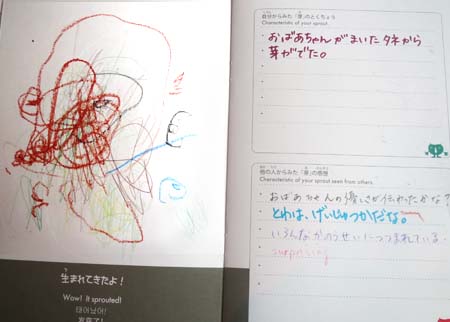 生まれてきたよ！
Wow! It sprouted!
태어났어!
自分からみた「芽」のとくちょう
Characteristic of your sprout
・おばあちゃんがまいたタネから
芽がでた。
他の人からみた「芽」の感想
Characteristic of your sprout seen from others.
おばあちゃんの優しさが伝わったかな？
とわは、げいじゅつかだな。
いろんなかのうせいにつつまれている.
surprising